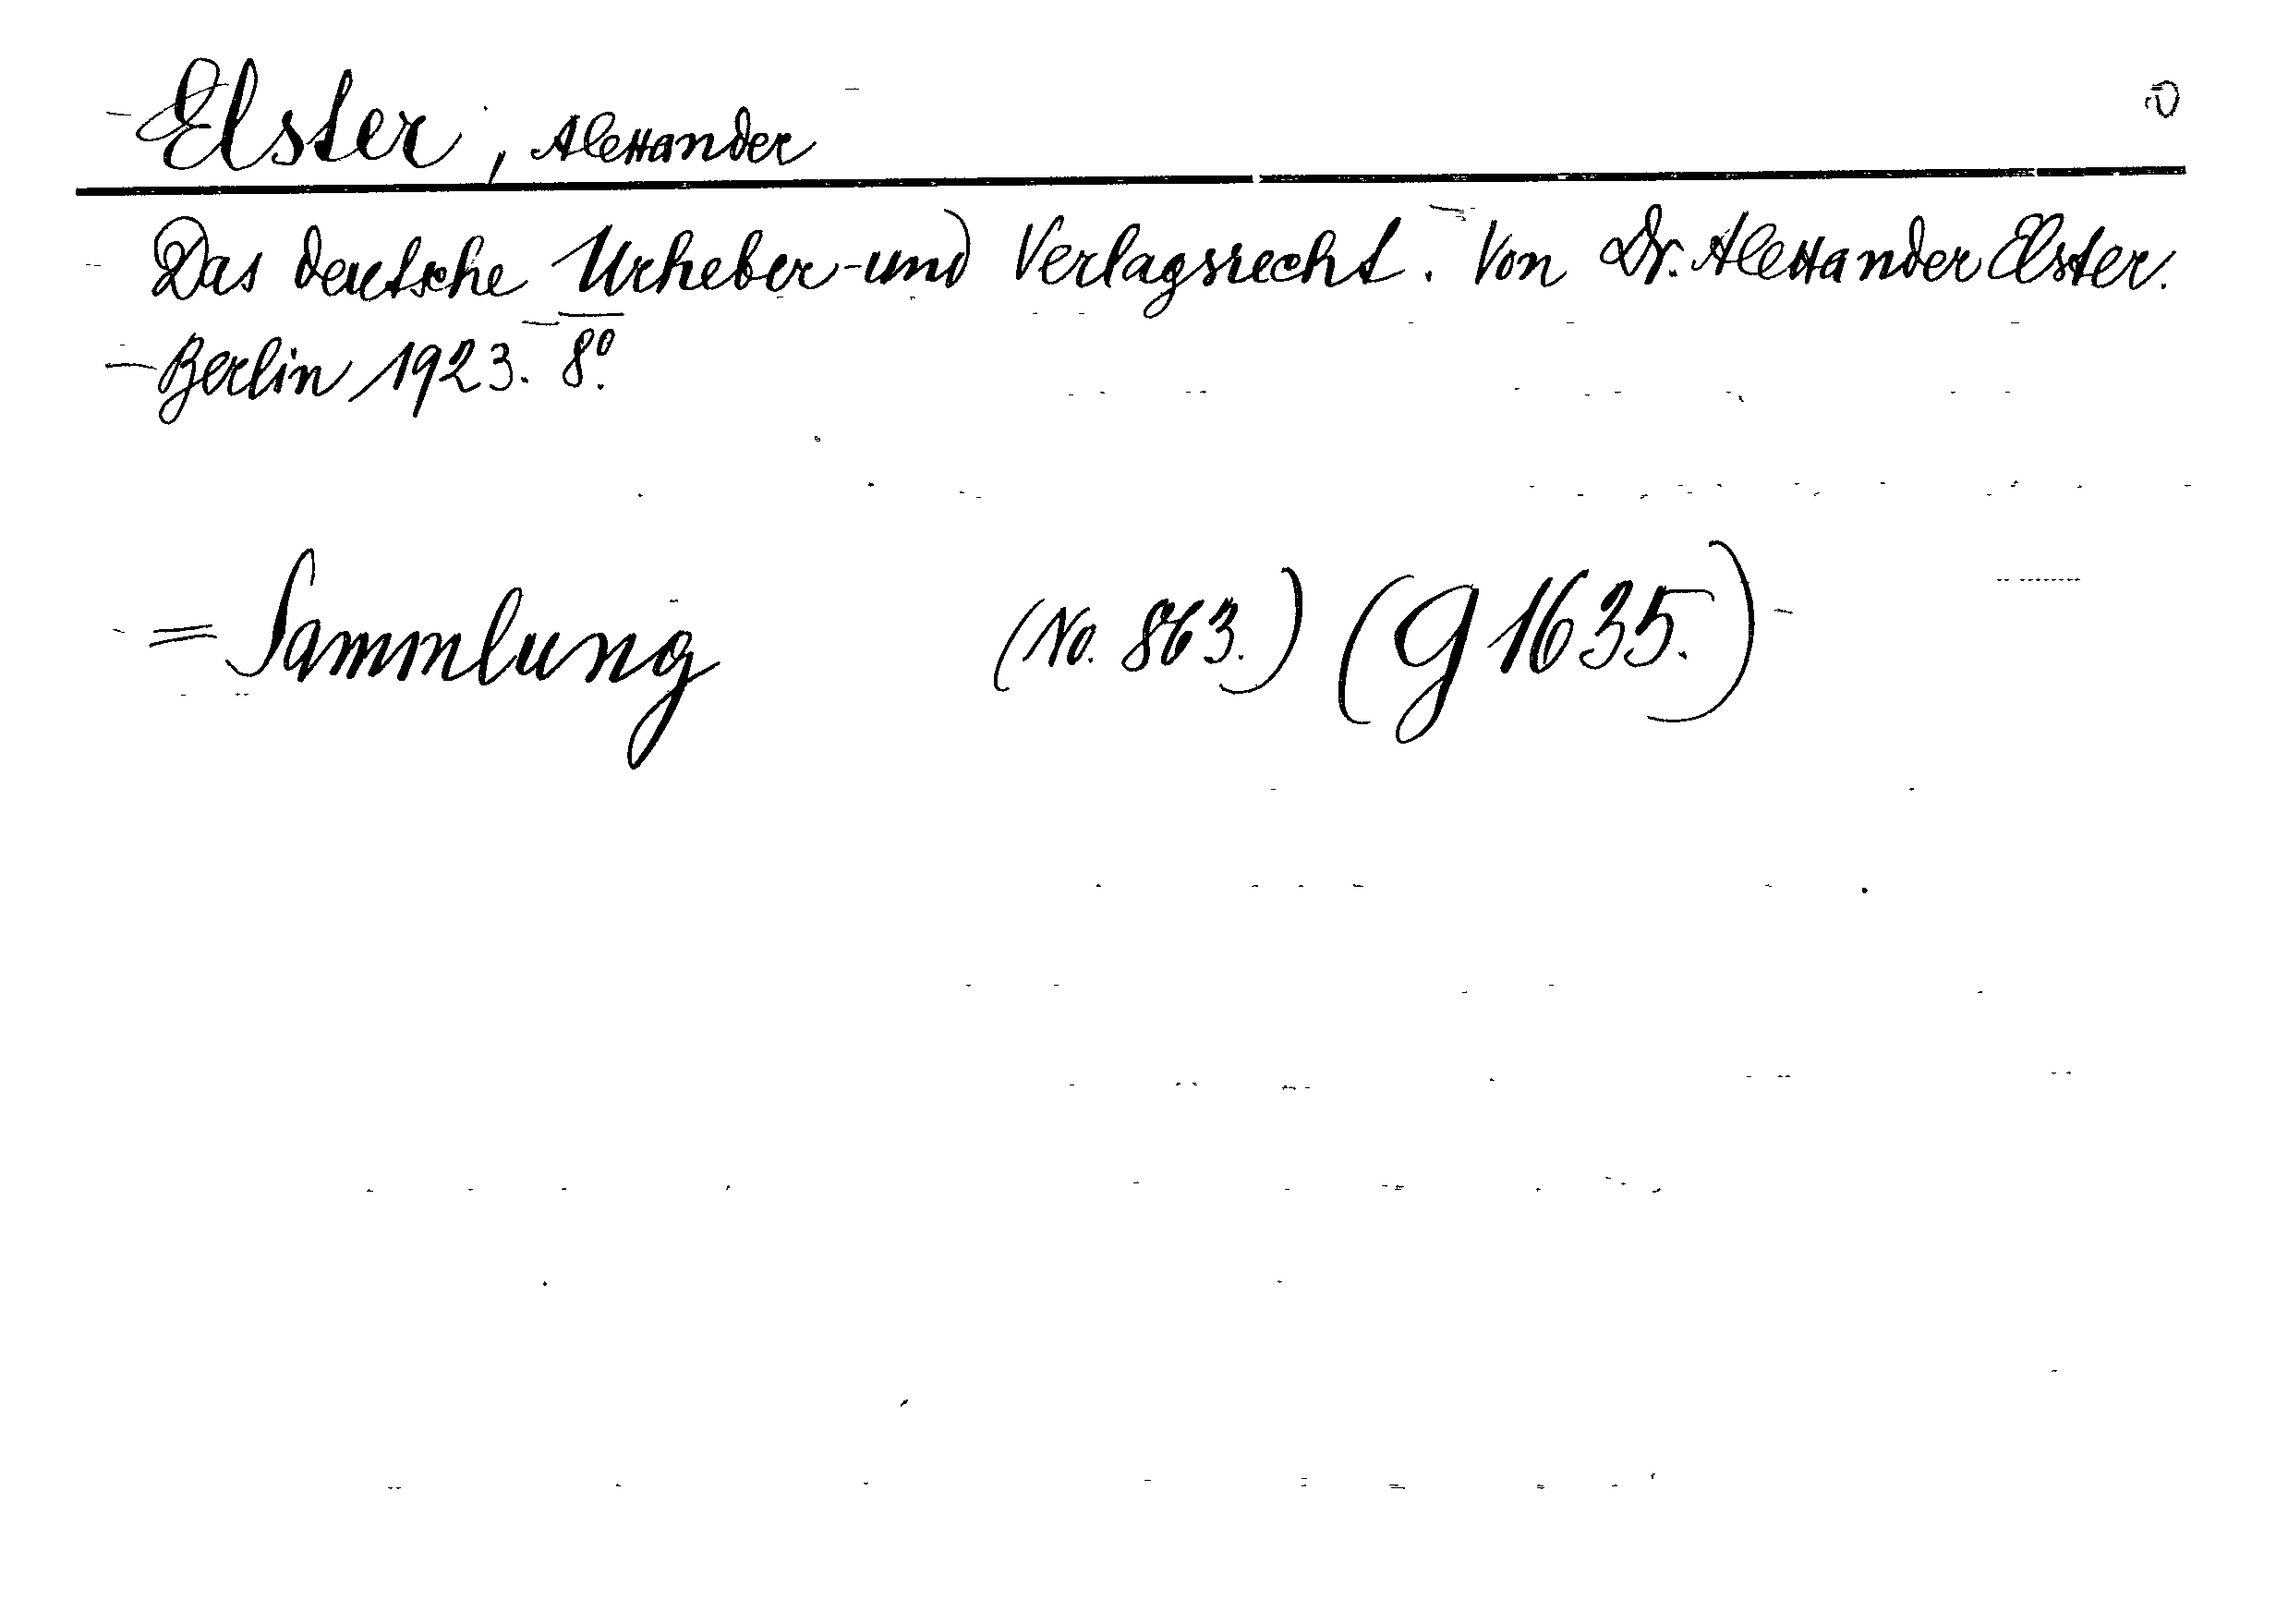 Elster, Alexander
Das deutsche Urheber- und Verlagsrecht. Von Dr. Alexander Elster.
Berlin 1923. 8°.
= Sammlung (No. 863.) (G 1635.)